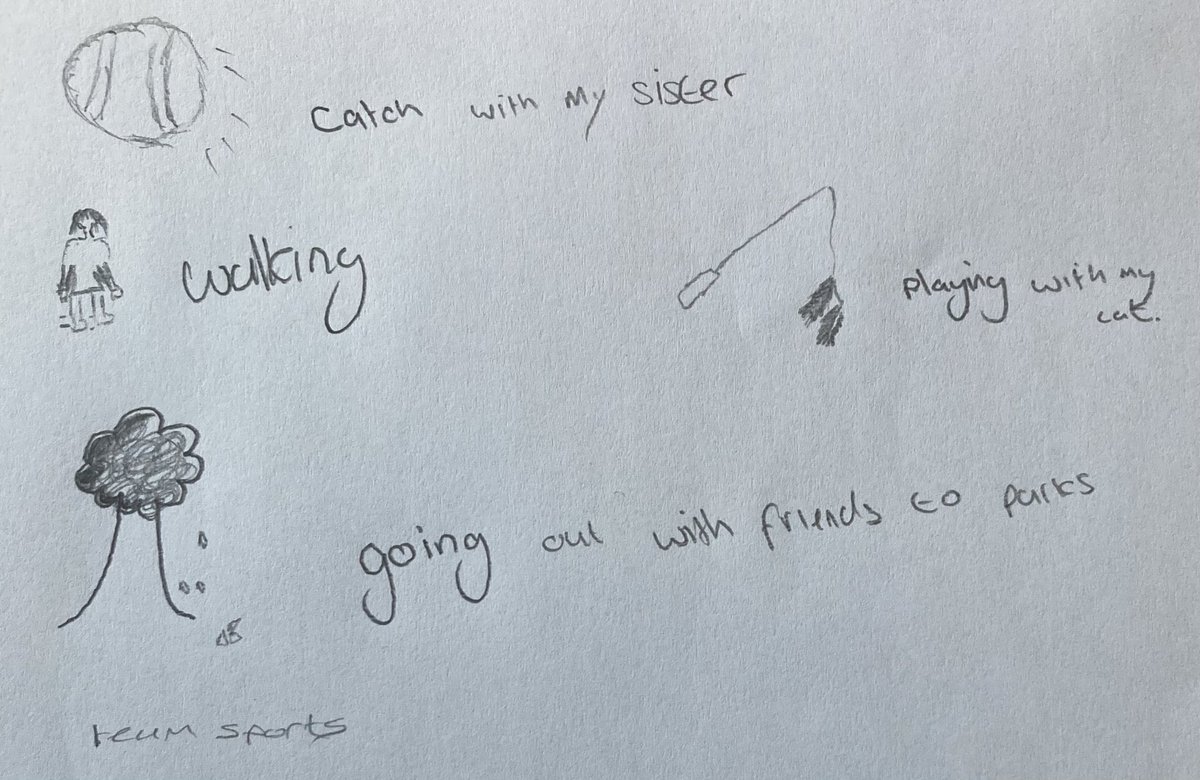 Catch with my sister
walking
playing with my
cat.
going out with friends to parks
team sports